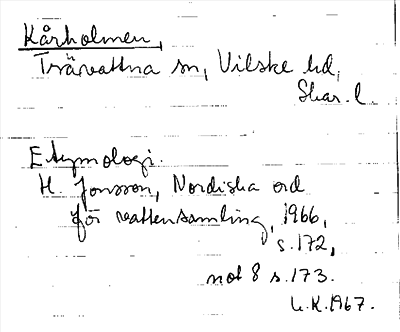 Kårholmen,
Trävattna sn, Vilske hd,
Skar. l.
Etymologi.
H. Jonsson, Nordiska ord
för vattensamling, 1966,
s. 172,
not 8 s. 173.
U.K. 1967.